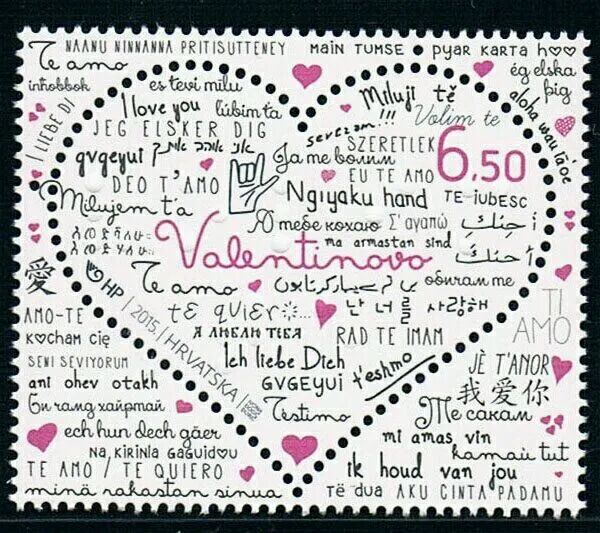 NAANU NINNANNA PRITISUTTENEY
MAIN TUMSE • PYAR KARTA H
Te amo
inħobbok
es tevi mīlu
ég elska þig
I LIEBE DI
I love you
ľúbim ťa
Miluji tě
!!!
Volim te
aloha wau iā 'oe
JEG ELSKER DIG
SZERETLEK
6,50
gvgeyui
אני אוהב אותך
Ја те волим
EU TE AMO
DEO T'AMO
Ngiyaku hand
TE IUBESC
Milujem ťa
Я тебе кохаю
Σ' αγαπώ
ma armastan sind
أحبك
Valentinovo
愛
HP
Te amo
обичам те
| 2015 | HRVATSKA |
TE QUIERO
난 너를 사랑해
TI AMO
AMO-TE
KOCHAM CIĘ
Я ЛЮБЛЮ ТЕБЯ
RAD TE IMAM
SENI SEVIYORUM
Ich liebe Dich
JÈ T'ANOR
ani ohev otakh
GVGEYUI
t'eshmo
我爱你
Би чамд хайртай
T'estimo
Те сакам
ech hun dech gäer
mi amas vin
NA KIRINLA GAGUIDOU
hamaii tut
TE AMO / TE QUIERO
ik houd van jou
minä rakastan sinua
TË DUA
AKU CINTA PADAMU